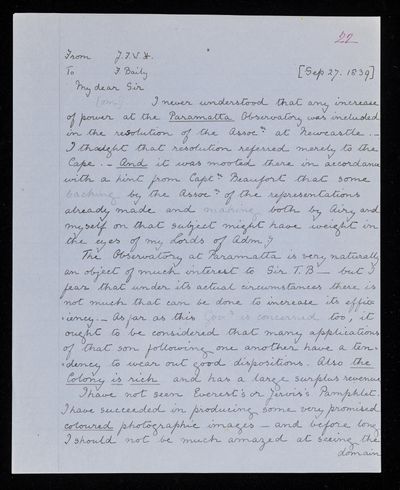 22
From J.F.W.H.
To F Baily
[Sep 27. 1839]
My dear Sir
I never understood that any increase
of power at the Paramatta Observatory was included
in the resolution of the Assocn at Newcastle. -
I thought that resolution referred merely to the
Cape. - And it was mooted there in accordance
with a hint from Captn Beaufort that some
backing by the Assocn of the representations
already made and making both by Airy and
myself on that subject might have weight in
the eyes of my Lords of Admy
The Observatory at Paramatta is very naturally
an object of much interest to Sir T.B - but I
fear that under its actual circumstances there is
not much that can be done to increase its effici
-ency. - As far as this Govt is concerned too, it
ought to be considered that many applications
of that son following one another have a ten-
-dency to wear out good dispositions. Also the
Colony is rich and has a large surplus revenue
I have not seen Everest's or Jervis's Pamphlet.
I have succeeded in producing some very promised
coloured photographic images - and before long
I should not be much amazed at seeing the
domain